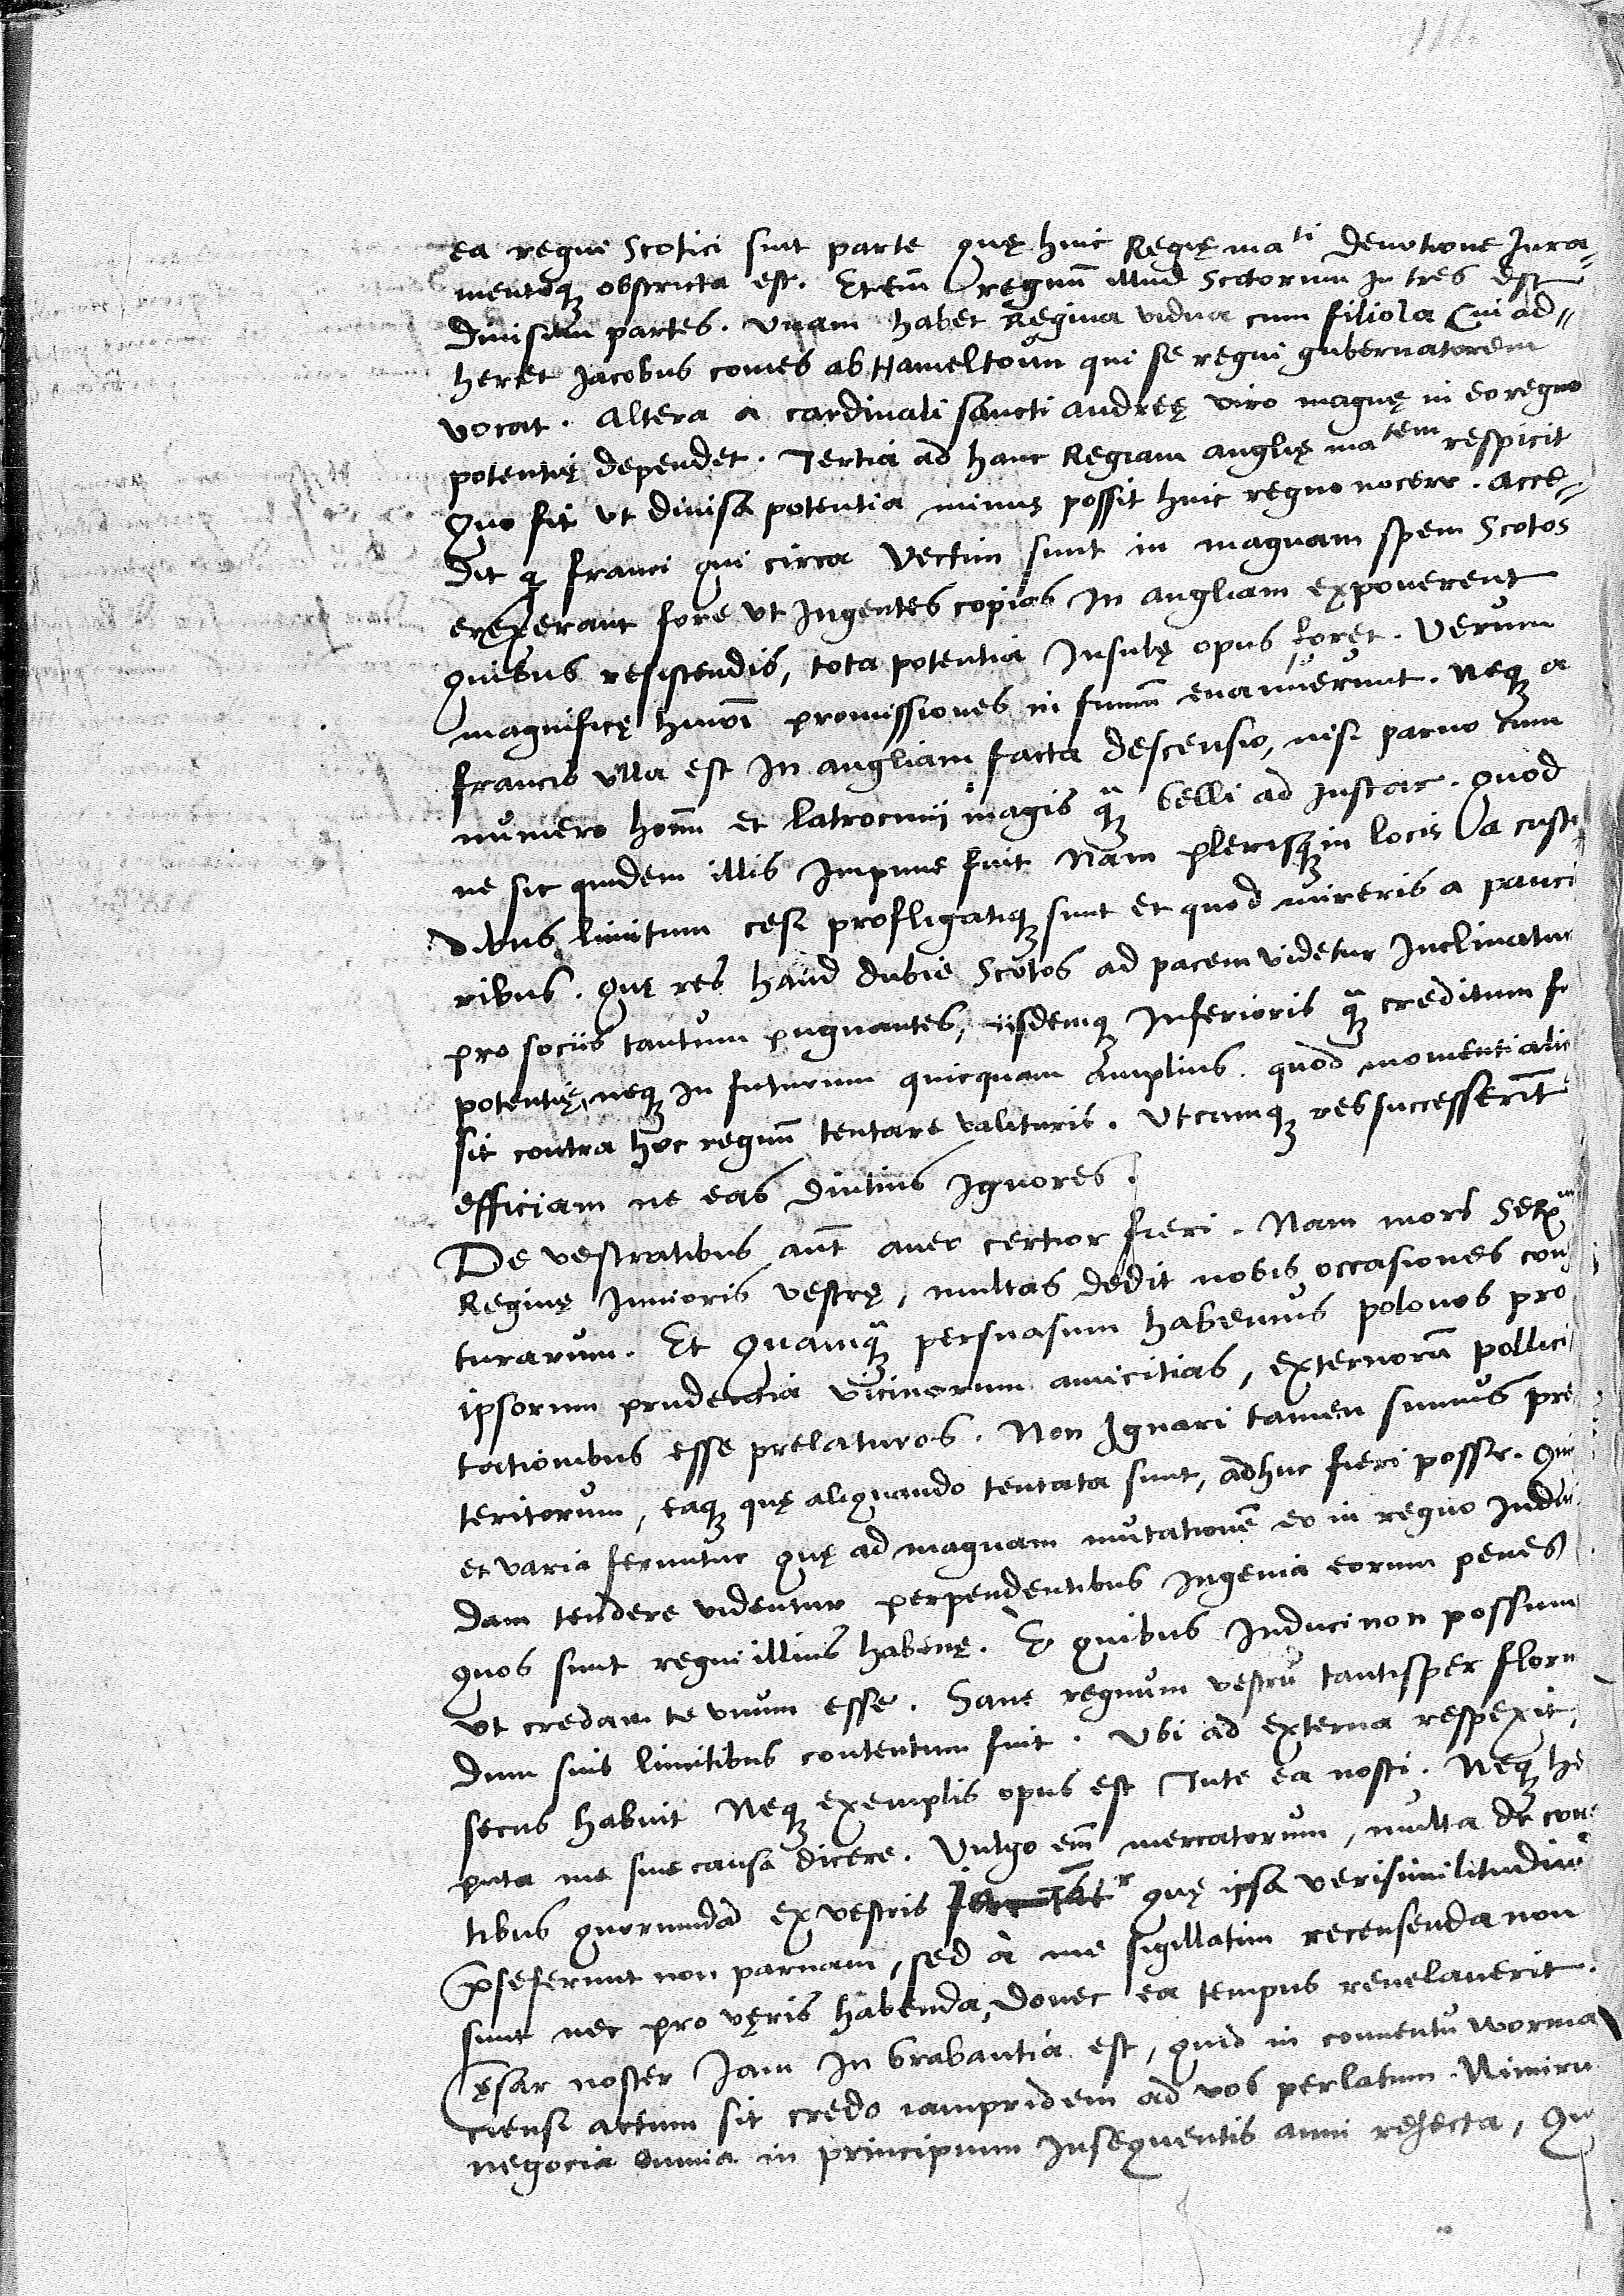 ea regni Scotici sint parte quę huic Regię ma^ti deuotione Jura-
mentoq₃ obstricta est. Etem̄ regnū illud Scotorum In tres est
diuisum partes. Vnam habet Regina vidua cum filiola Cui ad-
heret Jacobus comes ab Hameltoun qui se regni gubernatorem
vocat. Altera a cardinali Sancti andreę viro magnę in eo regno
potentię dependet. Tertia ad hanc Regiam anglię ma^tem respicit
Quo fit vt diuisa potentia minus possit huic regno nocere. Acce-
dit q franci qui circa Vectim sunt in magnam spem Scotos
erexerant fore vt Ingentes copias In angliam exponerent
quibus resistendis, tota potentia Insulę opus foret. Verum
magnificę hmōi promissiones in fumū euanuerunt. Neq₃ a
francis vlla est In angliam facta descensio, nisi paruo cum
numero hoīm et latrocinij magis q̄₃ belli ad Instar. Quod
ne sic quidem illis Impune fuit Nam plerisq₃ in locis a custo
dibus limitum cesi profligatiq₃ sunt et quod mireris a pauci
ribus. Quę res haud dubie Scotos ad pacem videtur Inclinatur
pro sociis tantum pugnantes, iisdemq₃ Inferioris q̄₃ creditum fu
potentię, neq₃ In futurum quicquam amplius. quod momenti alic
sit contra hoc regnū tentare valituris. Vtcumq₃ res successerīt
efficiam ne eas diutius Ignores.
De vestratibus aūt aueo certior fieri. Nam mors Ser^m
Reginę Iunioris vestrę, multas dedit nobis occasiones con
turarum. Et Quamq̄₃ persuasum habemus polonos pro
ipsorum prudentia vicinorum amicitias, externorū pollici
tationibus esse prelaturos. Non Ignari tamen sumus pre
teritorum, eaq₃ quę aliquando tentata sunt, adhuc fieri posse. Qui
et varia feruntur quę ad magnam mutationē eo in regno Indu
dam tendere videntur perpendentibus Ingenia eorum penes
quos sunt regni illius habenę. E quibus Induci non possum
vt credam te vnum esse. Sane regnum vestrū tantisper floru
dum suis limitibus contentum fuit. Vbi ad externa respexit,
secus habuit Neq₃ exemplis opus est Tute ea nosti. Neq₃ he
puta me sine causa dicere. Vulgo em̄ mercatorum, multa de con
tibus quorundā ex vestris quę ipsa verisimilitudinē
p̄seferunt non paruam, sed à me sigillatim recensenda non
sunt nec pro vęris habenda, donec ea tempus reuelauerit.
Cęsar noster Iam In brabantia est, quid in conuentu worma
ciensi actum sit credo iampridem ad vos perlatum. Nimiru
negocia omnia in principium Insequentis anni reiecta, Qu